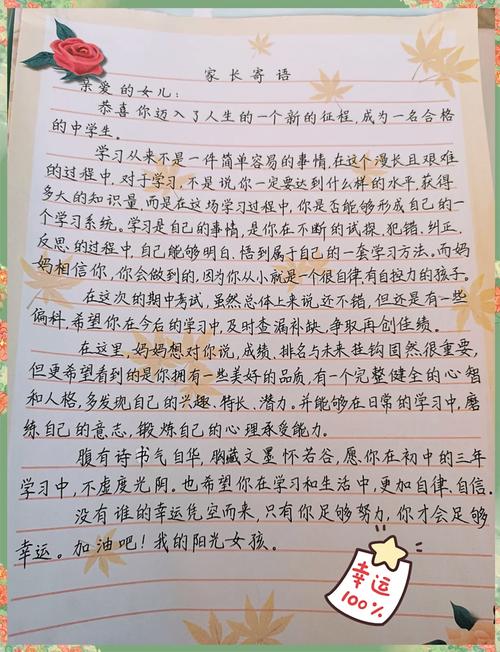 家长寄语
亲爱的女儿:
恭喜你迈入了人生的一个新的征程,成为一名合格
的中学生。
学习从来不是一件简单容易的事情,在这个漫长且艰难
的过程中,对于学习,不是说你一定要达到什么样的水平,获得
多大的知识量,而是在这场学习过程中,你是否能够形成自己的一
个学习系统。学习是自己的事情,是你在不断的试探、犯错、纠正、
反思的过程中,自己能够明白、悟到属于自己的一套学习方法。而妈
妈相信你,你会做到的,因为你从小就是一个很自律,有自控力的孩子。
在这次的期中考试,虽然总体上来说还不错,但还是有一些
偏科,希望你在今后的学习中,及时查漏补缺,争取再创佳绩。
在这里,妈妈想对你说,成绩、排名与未来挂钩固然很重要,
但更希望看到的是你拥有一些美好的品质,有一个完整健全的心智
和人格,多发现自己的兴趣、特长、潜力。并能够在日常的学习中,磨
练自己的意志,锻炼自己的心理承受能力。
腹有诗书气自华,胸藏文墨怀若谷,愿你在初中的三年
学习中,不虚度光阴。也希望你在学习和生活中,更加自律、自信。
没有谁的幸运凭空而来,只有你足够努力,你才会足够
幸运。加油吧!我的阳光女孩。
幸运
100%